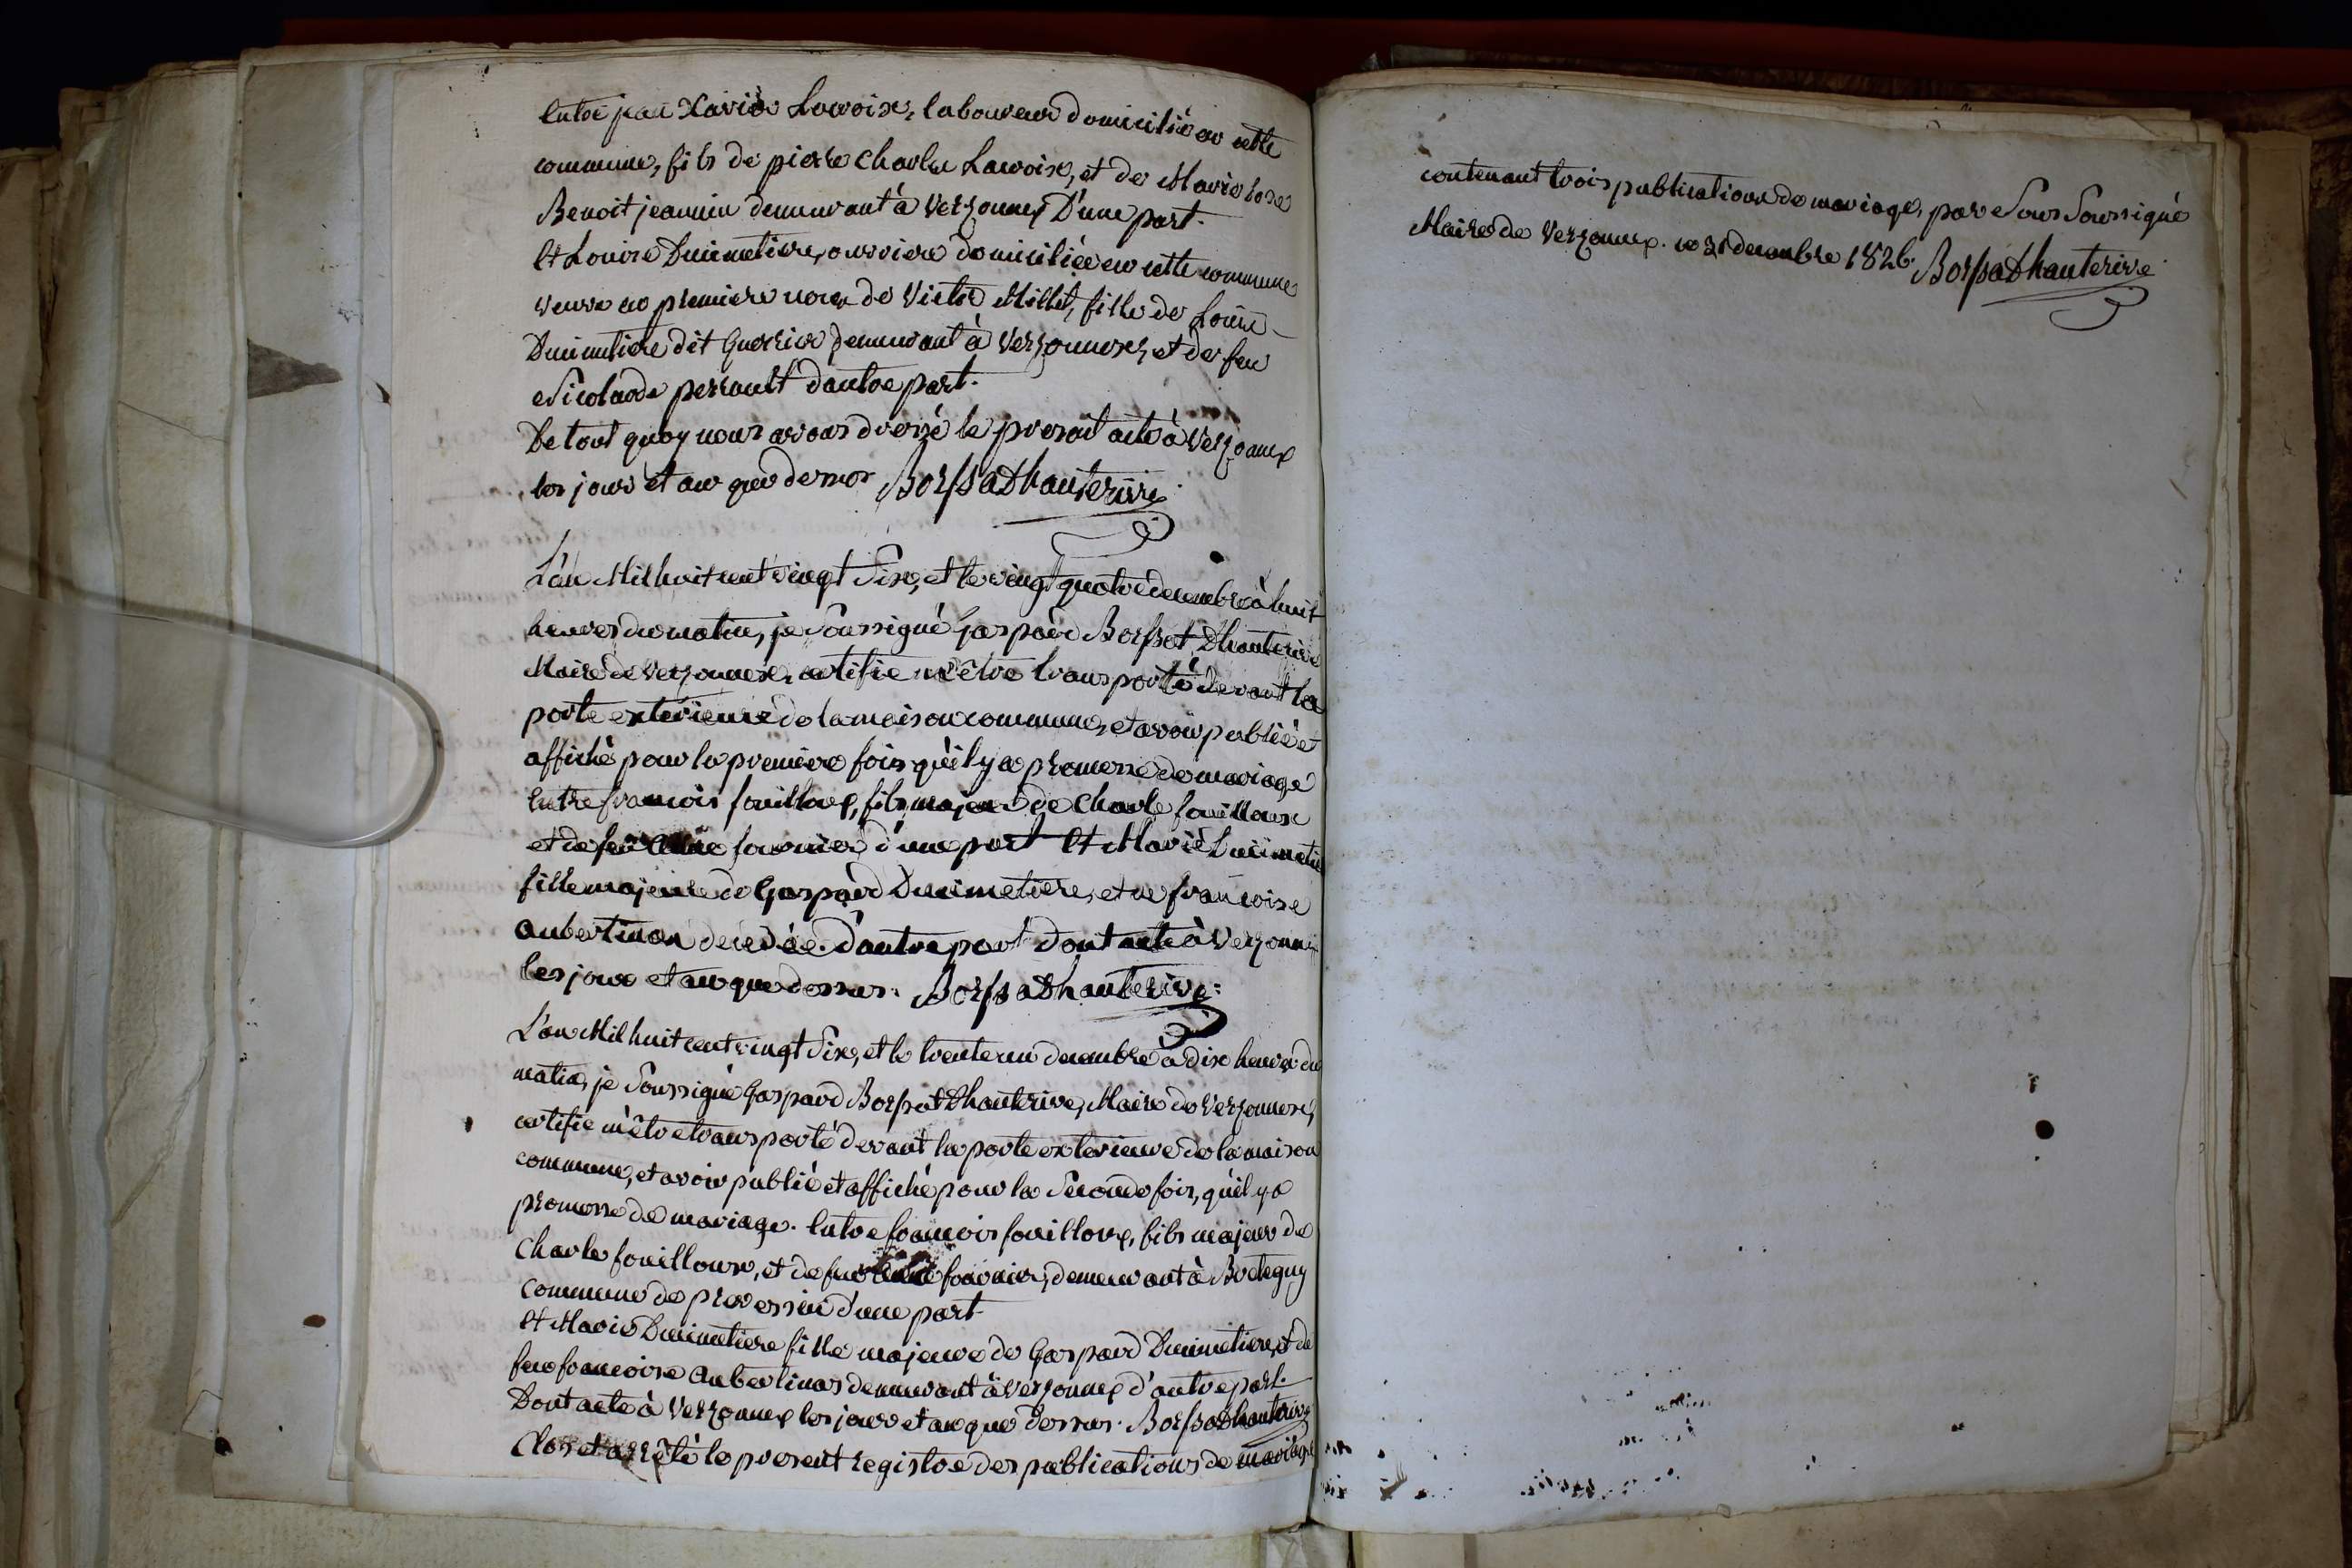 Entre jean Xavier Lavoix, laboureur domicilié en cette
commune, fils de pierre Charles Lavoix, et de Marie rose
Benoit jeannin demeurant à Verzonnex D'une part.
Et Louise Ducimetiere, ouvriere domiciliée en cette commune
veuve en premiere noces de Victor Millet, fille de Louis
Ducimetiere dit Guerrier demeurant à Versonnex, et de feu
Nicolarde perrault d'autre part.
De tout quoy nous avons dressé le present acte à Verzonnex
les jour et an que dessus Borssat Dhauterive
L'an Mil huit cent vingt Six, et le vingt quatre decembre à huit
heures du matin, je Soussigné Gaspard Borssat Dhauterive
Maire de Verzonnex, certifie m'être transporté devant la
porte exterieure de la maison commune, et avoir publié et
affiché pour la premiere fois qu'il y a promesse de mariage
Entre francois fouilloux, fils majeur de Charle fouilloux
et de feu fournier d'une part Et Marie Ducimetie
fille majeure de Gaspard Ducimetiere, et de francoise
aubertinas decedée d'autre part dont acte à Verzonne
les jour et an que dessus. Borssat Dhauterive
L'an Mil huit cent vingt Six, et le trente un decembre à dix heures du
matin, je Soussigné Gaspard Borssat Dhauterive, Maire de Verzonnex,
certifie m'être transporté devant la porte exterieure de la maison
commune, et avoir publié et affiché pour la Seconde fois, qu'il y a
promesse de mariage. Entre francois fouilloux, fils majeur de
Charles fouilloux, et de feu fournier, demeurant à Bretegny
commune de prevessin d'une part
Et Marie Ducimetiere fille majeure de Gaspard Ducimetiere, et de
feue francoise aubertinas demeurant à Verzonnex d'autre part.
Dont acte à Verzonnex les jour et an que dessus. Borssat Dhauterive
Clos et arrêté le present registre des publications de mariage
contenant trois publications de mariage, par Nous Soussigné
Maire de Verzonnex. ce 31 decembre 1826. Borssat Dhauterive